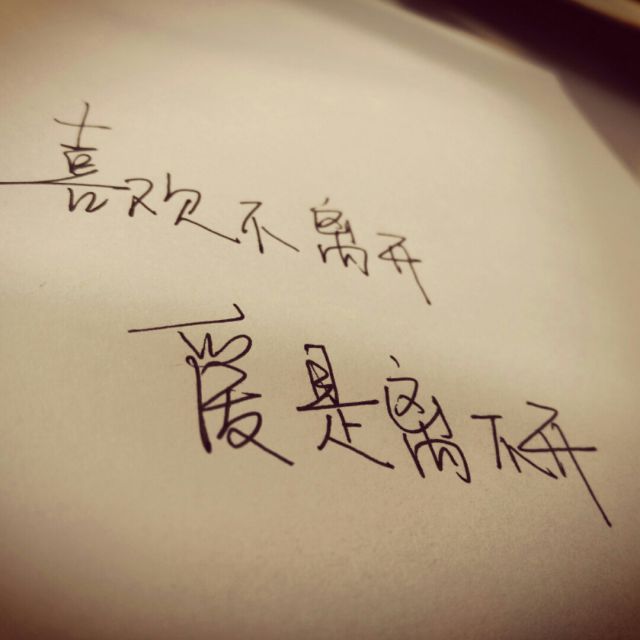 喜欢不离开
爱是离不开